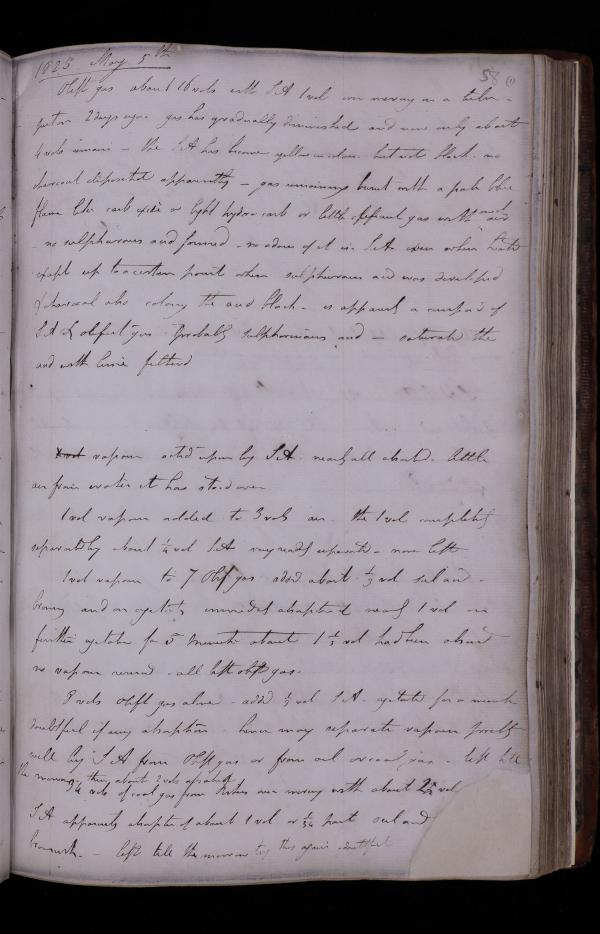 1825 May 5th
58
Oleft gas about 16 vols with S.A 1 vol over mercury in a tube
2 days ago. gas has gradually diminished and now only about
4 vols remain - the S.A has become yellow in colour but not black. no
charcoal deposited apparently - gas remaining burnt with a pale blue
flame like carb oxide or light hydro-carb or little olefiant gas with much air
- no sulphurous acid formed - no odour of it in S.A even when heated
except up to a certain point when sulphurous acid was developed
& charcoal also colouring the acid black - is apparently a compound of
S.A & olefiant gas. Probably sulphovinous acid - saturate the
acid with filtered
vapour acted upon by S.A. nearly all absorbed. little
air from water it has stood over
1 vol vapour added to 3 vols air. the 1 vol completely
separated by about 1/4 vol S.A very readily separated - none left
1 vol vapour to 7 Olef gas. added about 1/3 vol sul acid -
brown and on agitating immediately absorbed nearly 1 vol on
further agitation for 5 minutes about 1 1/3 vol had been absorbed
no vapour remained - all left oleft gas.
8 vols oleft gas alone. add 1/3 vol S.A. agitate for a minute
doubtful if any absorption - hence may separate vapour pretty
well by S.A from Oleft gas or from oil or coal gas. left till
the morning, then about 2 vols absorbed
vols of coal gas from over mercury with about vol
S.A apparently absorption of about 1 vol or part sul acid
brownish - left till the morrow this again doubtful